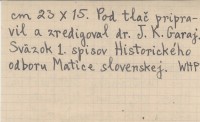 cm 23 x 15. Pod tlač pripra-
vil a zredigoval dr. J. K. Garaj.
Sväzok 1. spisov Historického
odboru Matice slovenskej. WHP